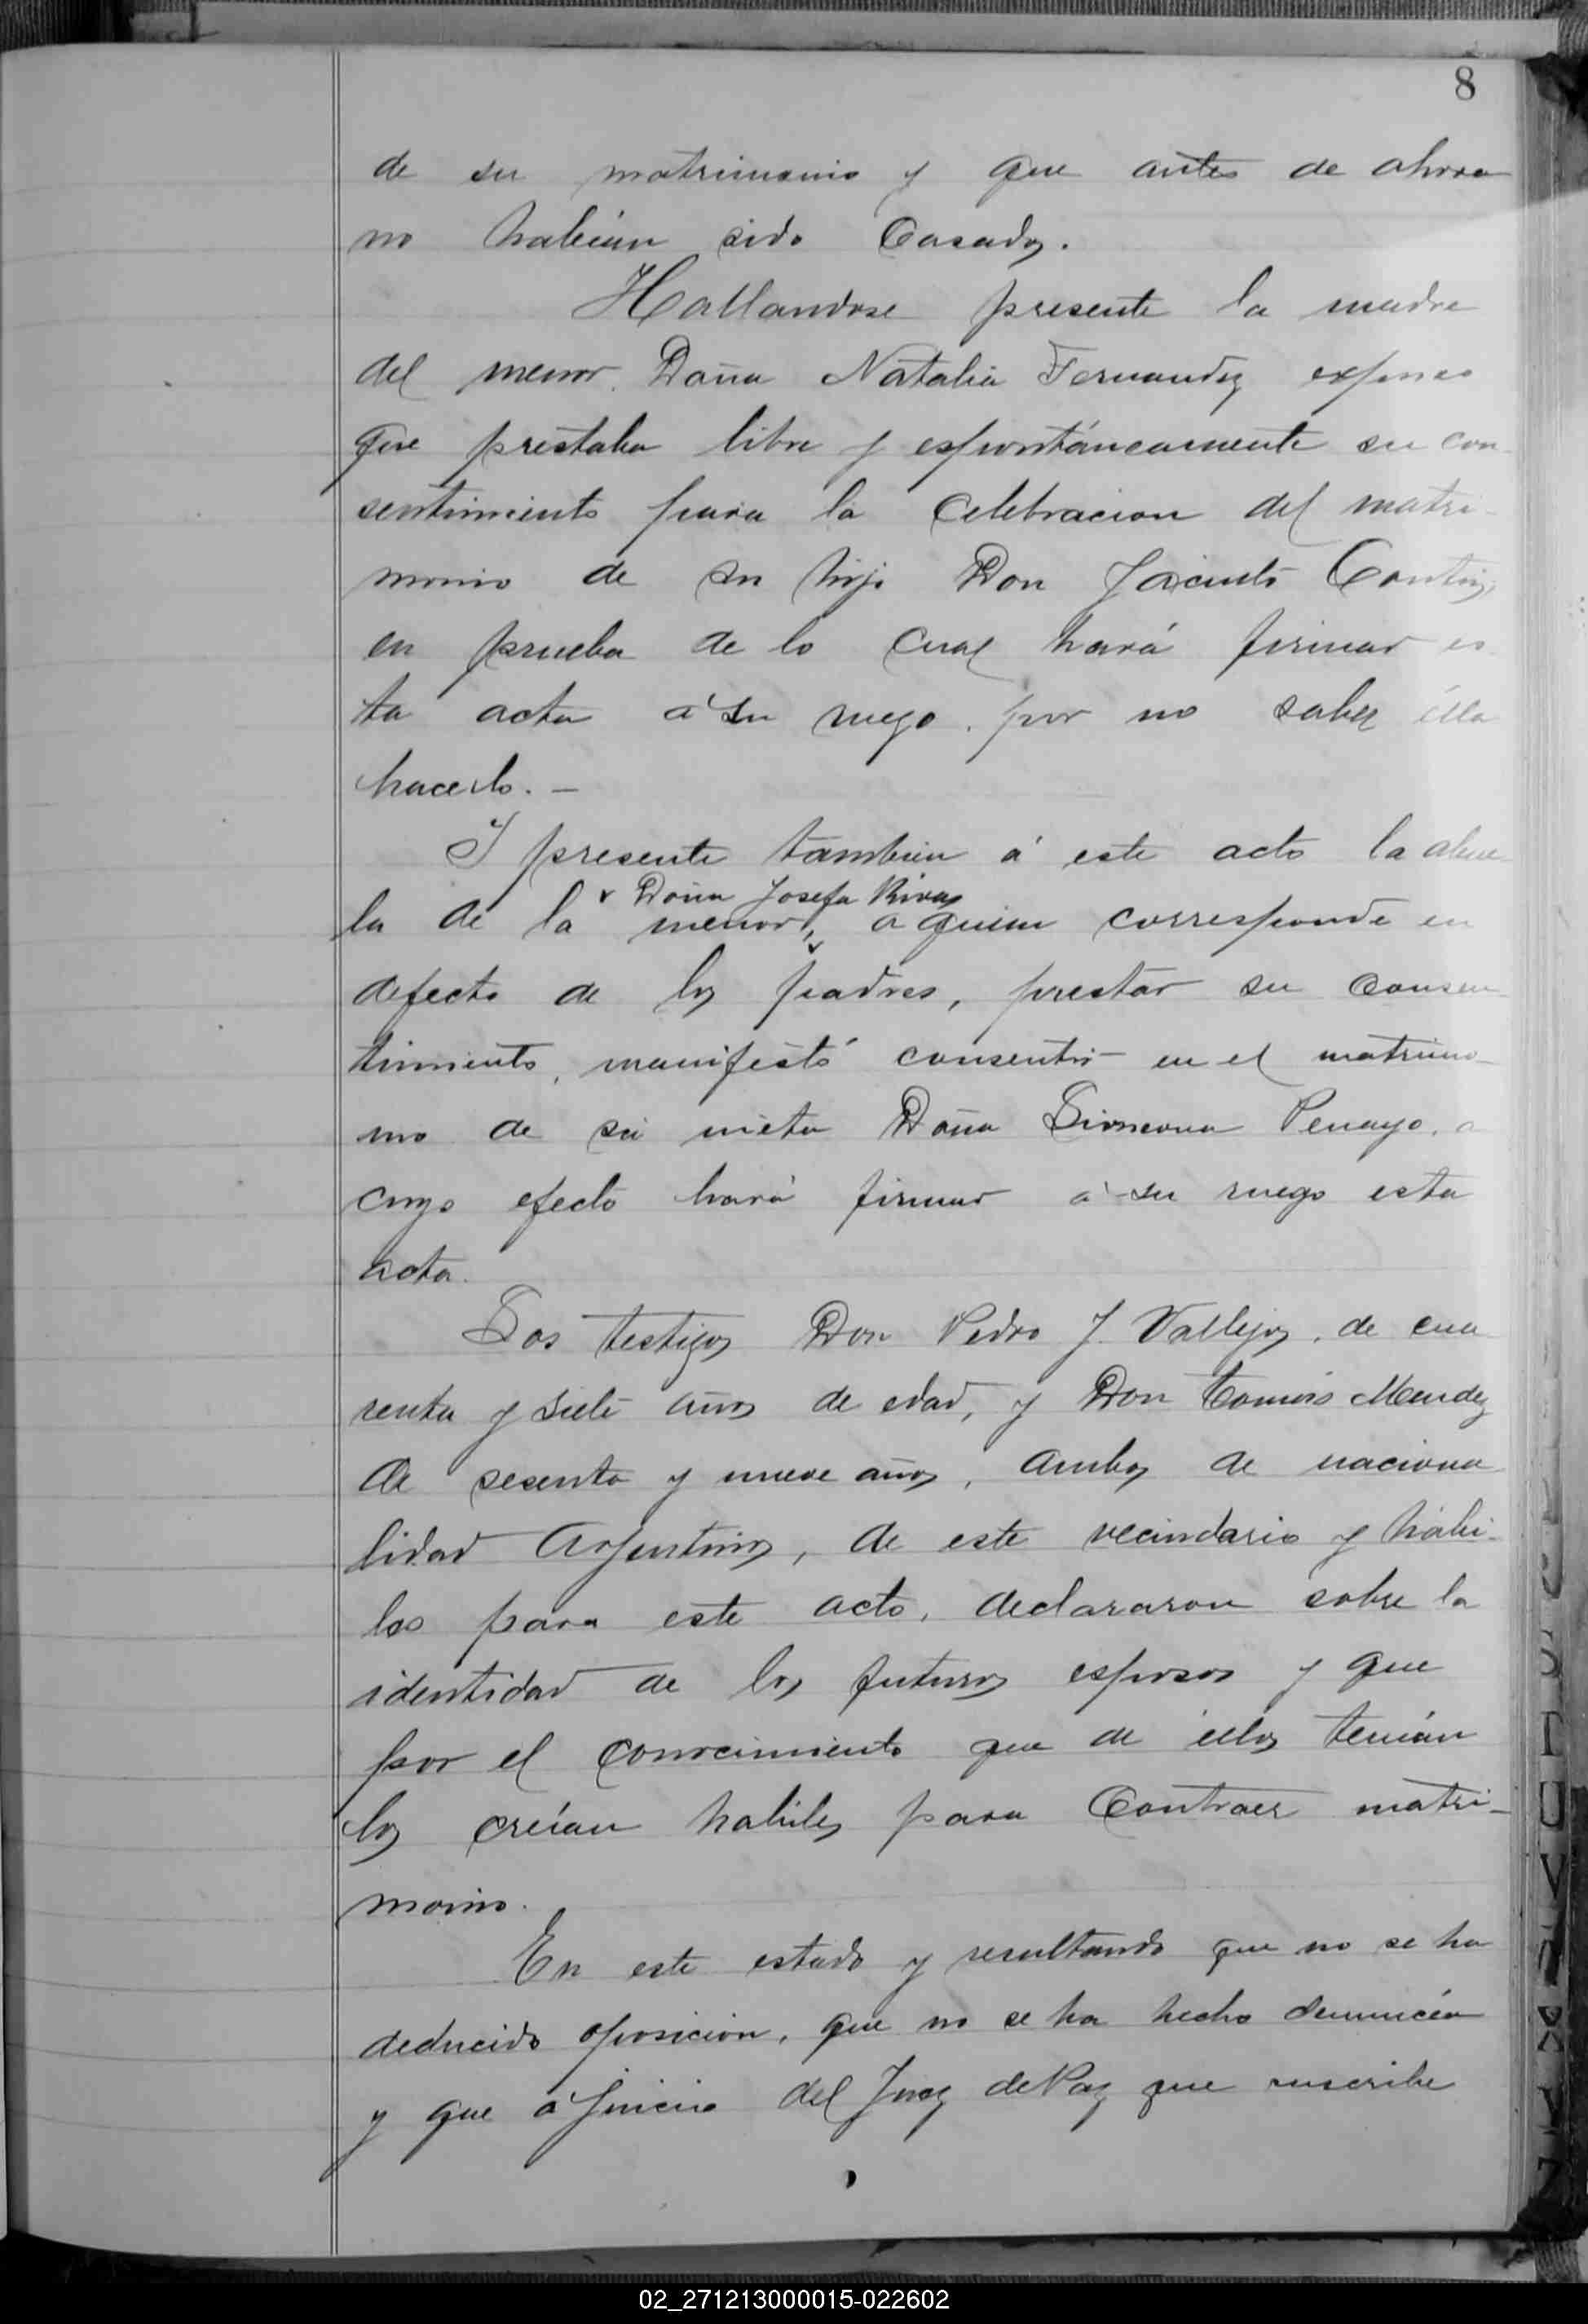 8
de su matrimonio y que antes de ahora
no habián sido Casados.
Hallandose presente la madre
del menor, Doña Natalia Fernandez expuso
que prestaba libre y espontáneamente su con
sentimiento para la Celebracion del matri-
monio de su hijo Don Jacinto
en prueba de lo cual hará firmar es
ta acta á su ruego, por no saber élla
hacerlo. —
I presente tambien á este acto la abue
Doña Josefa Rivas
la de la menor, a quien corresponde en
defecto de los padres, prestar su consen
timiento, manifestó consentir en el matrimo-
nio de su nieta Doña Simeona Penayo, a
cuyo efecto hará firmar á su ruego esta
acta.
Los testigos Don Pedro J. Vallejos, de cua
renta y siete años de edad, y Don Tomás Mendez
de sesenta y nueve años, ambos de naciona
lidad Argentinos, de este vecindario y hábi-
les para este acto, declararon sobre la
identidad de los futuros esposos y que
por el conocimiento que de éllos tenián
los creían habiles para Contraer matri-
monio.
En este estado y resultando que no se ha
deducido oposicion, que no se ha hecho denuncia
y que á juicio del Juez de Paz que suscribe
02_271213000015-022602